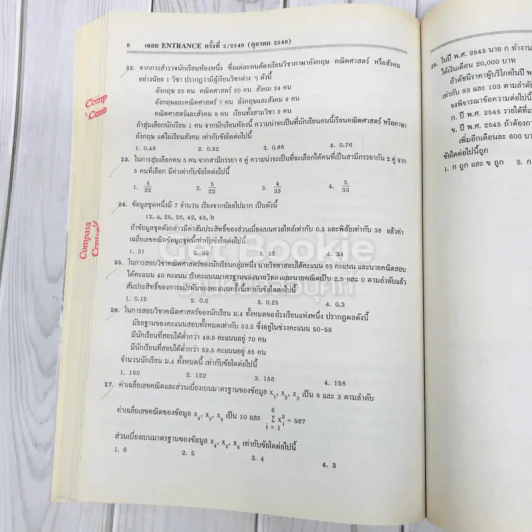 8 เฉลย ENTRANCE ครั้งที่ 2/2546 (ตุลาคม 2546)
22. จากการสำรวจนักเรียนห้องหนึ่ง ซึ่งแต่ละคนต้องเรียนวิชาภาษาอังกฤษ คณิตศาสตร์ หรือสังคม
อย่างน้อย 1 วิชา ปรากฏว่ามีผู้เรียนวิชาต่าง ๆ ดังนี้
อังกฤษ 25 คน คณิตศาสตร์ 20 คน สังคม 24 คน
อังกฤษและคณิตศาสตร์ 7 คน อังกฤษและสังคม 9 คน
คณิตศาสตร์และสังคม 5 คน เรียนทั้งสามวิชา 5 คน
ถ้าสุ่มเลือกนักเรียน 1 คน จากนักเรียนห้องนี้ ความน่าจะเป็นที่นักเรียนคนนี้เรียนคณิตศาสตร์ หรือภาษา
อังกฤษ แต่ไม่เรียนสังคม เท่ากับข้อใดต่อไปนี้
1. 0.48 2. 0.52 3. 0.66 4. 0.76
23. ในการสุ่มเลือกคน 5 คน จากสามีภรรยา 6 คู่ ความน่าจะเป็นที่จะเลือกได้คนที่เป็นสามีภรรยากัน 2 คู่ จาก
5 คนที่เลือก มีค่าเท่ากับข้อใดต่อไปนี้
1. 4/22 2. 5/22 3. 4/33 4. 5/33
24. ข้อมูลชุดหนึ่งมี 7 จำนวน เรียงจากน้อยไปมาก เป็นดังนี้
12, a, 25, 26, 42, 48, b
ถ้าข้อมูลชุดดังกล่าวมีค่าสัมประสิทธิ์ของส่วนเบี่ยงเบนควอไทล์เท่ากับ 0.5 และพิสัยเท่ากับ 36 แล้วค่า
เฉลี่ยเลขคณิตข้อมูลชุดนี้เท่ากับข้อใดต่อไปนี้
1. 31 4. 34
25. ในการสอบวิชาคณิตศาสตร์ของนักเรียนกลุ่มหนึ่ง นายวิทยาสอบได้คะแนน 65 คะแนน และนายคณิตสอบ
ได้คะแนน 40 คะแนน ถ้าคะแนนมาตรฐานของนายวิทยาและนายคณิตเป็น 2.5 และ 0 ตามลำดับแล้ว
สัมประสิทธิ์ของการแปรผันของคะแนนครั้งนี้เท่ากับข้อใดต่อไปนี้
1. 0.15 2. 0.2 3. 0.25 4. 0.3
26. ในการสอบวิชาคณิตศาสตร์ของนักเรียน ม.4 ทั้งหมดของโรงเรียนแห่งหนึ่ง ปรากฏผลดังนี้
มัธยฐานของคะแนนสอบทั้งหมดเท่ากับ 53.5 ซึ่งอยู่ในช่วงคะแนน 50-59
มีนักเรียนที่สอบได้ต่ำกว่า 49.5 คะแนนอยู่ 70 คน
มีนักเรียนที่สอบได้ต่ำกว่า 59.5 คะแนนอยู่ 85 คน
จำนวนนักเรียน ม.4 ทั้งหมดนี้ เท่ากับข้อใดต่อไปนี้
1. 150 2. 152 3. 156 4. 158
27. ค่าเฉลี่ยเลขคณิตและส่วนเบี่ยงเบนมาตรฐานของข้อมูล x₁, x₂, x₃ เป็น 8 และ 3 ตามลำดับ
ค่าเฉลี่ยเลขคณิตของข้อมูล x₄, x₅, x₆ เป็น 10 และ 6 Σ i = 1 xᵢ² = 567
ส่วนเบี่ยงเบนมาตรฐานของข้อมูล x₄, x₅, x₆ เท่ากับข้อใดต่อไปนี้
1. 6 2. 5 3. 4 4. 3
Compass
Get Bookie
28. ในปี พ.ศ. 2545 นาย ก ทำงาน
ได้เงินเดือน 20,000 บาท
ถ้าดัชนีราคาผู้บริโภคในปี พ
เท่ากับ 93 และ 103 ตามลำดับ
จงพิจารณาข้อความต่อไปนี้
ก. ปี พ.ศ. 2545 รายได้ที่แ
ข. ปี พ.ศ. 2545 ถ้าต้องกา
เพิ่มอีกเดือนละ 600 บา
ข้อใดต่อไปนี้ถูก
1. ก ถูก และ ข ถูก 2. ก